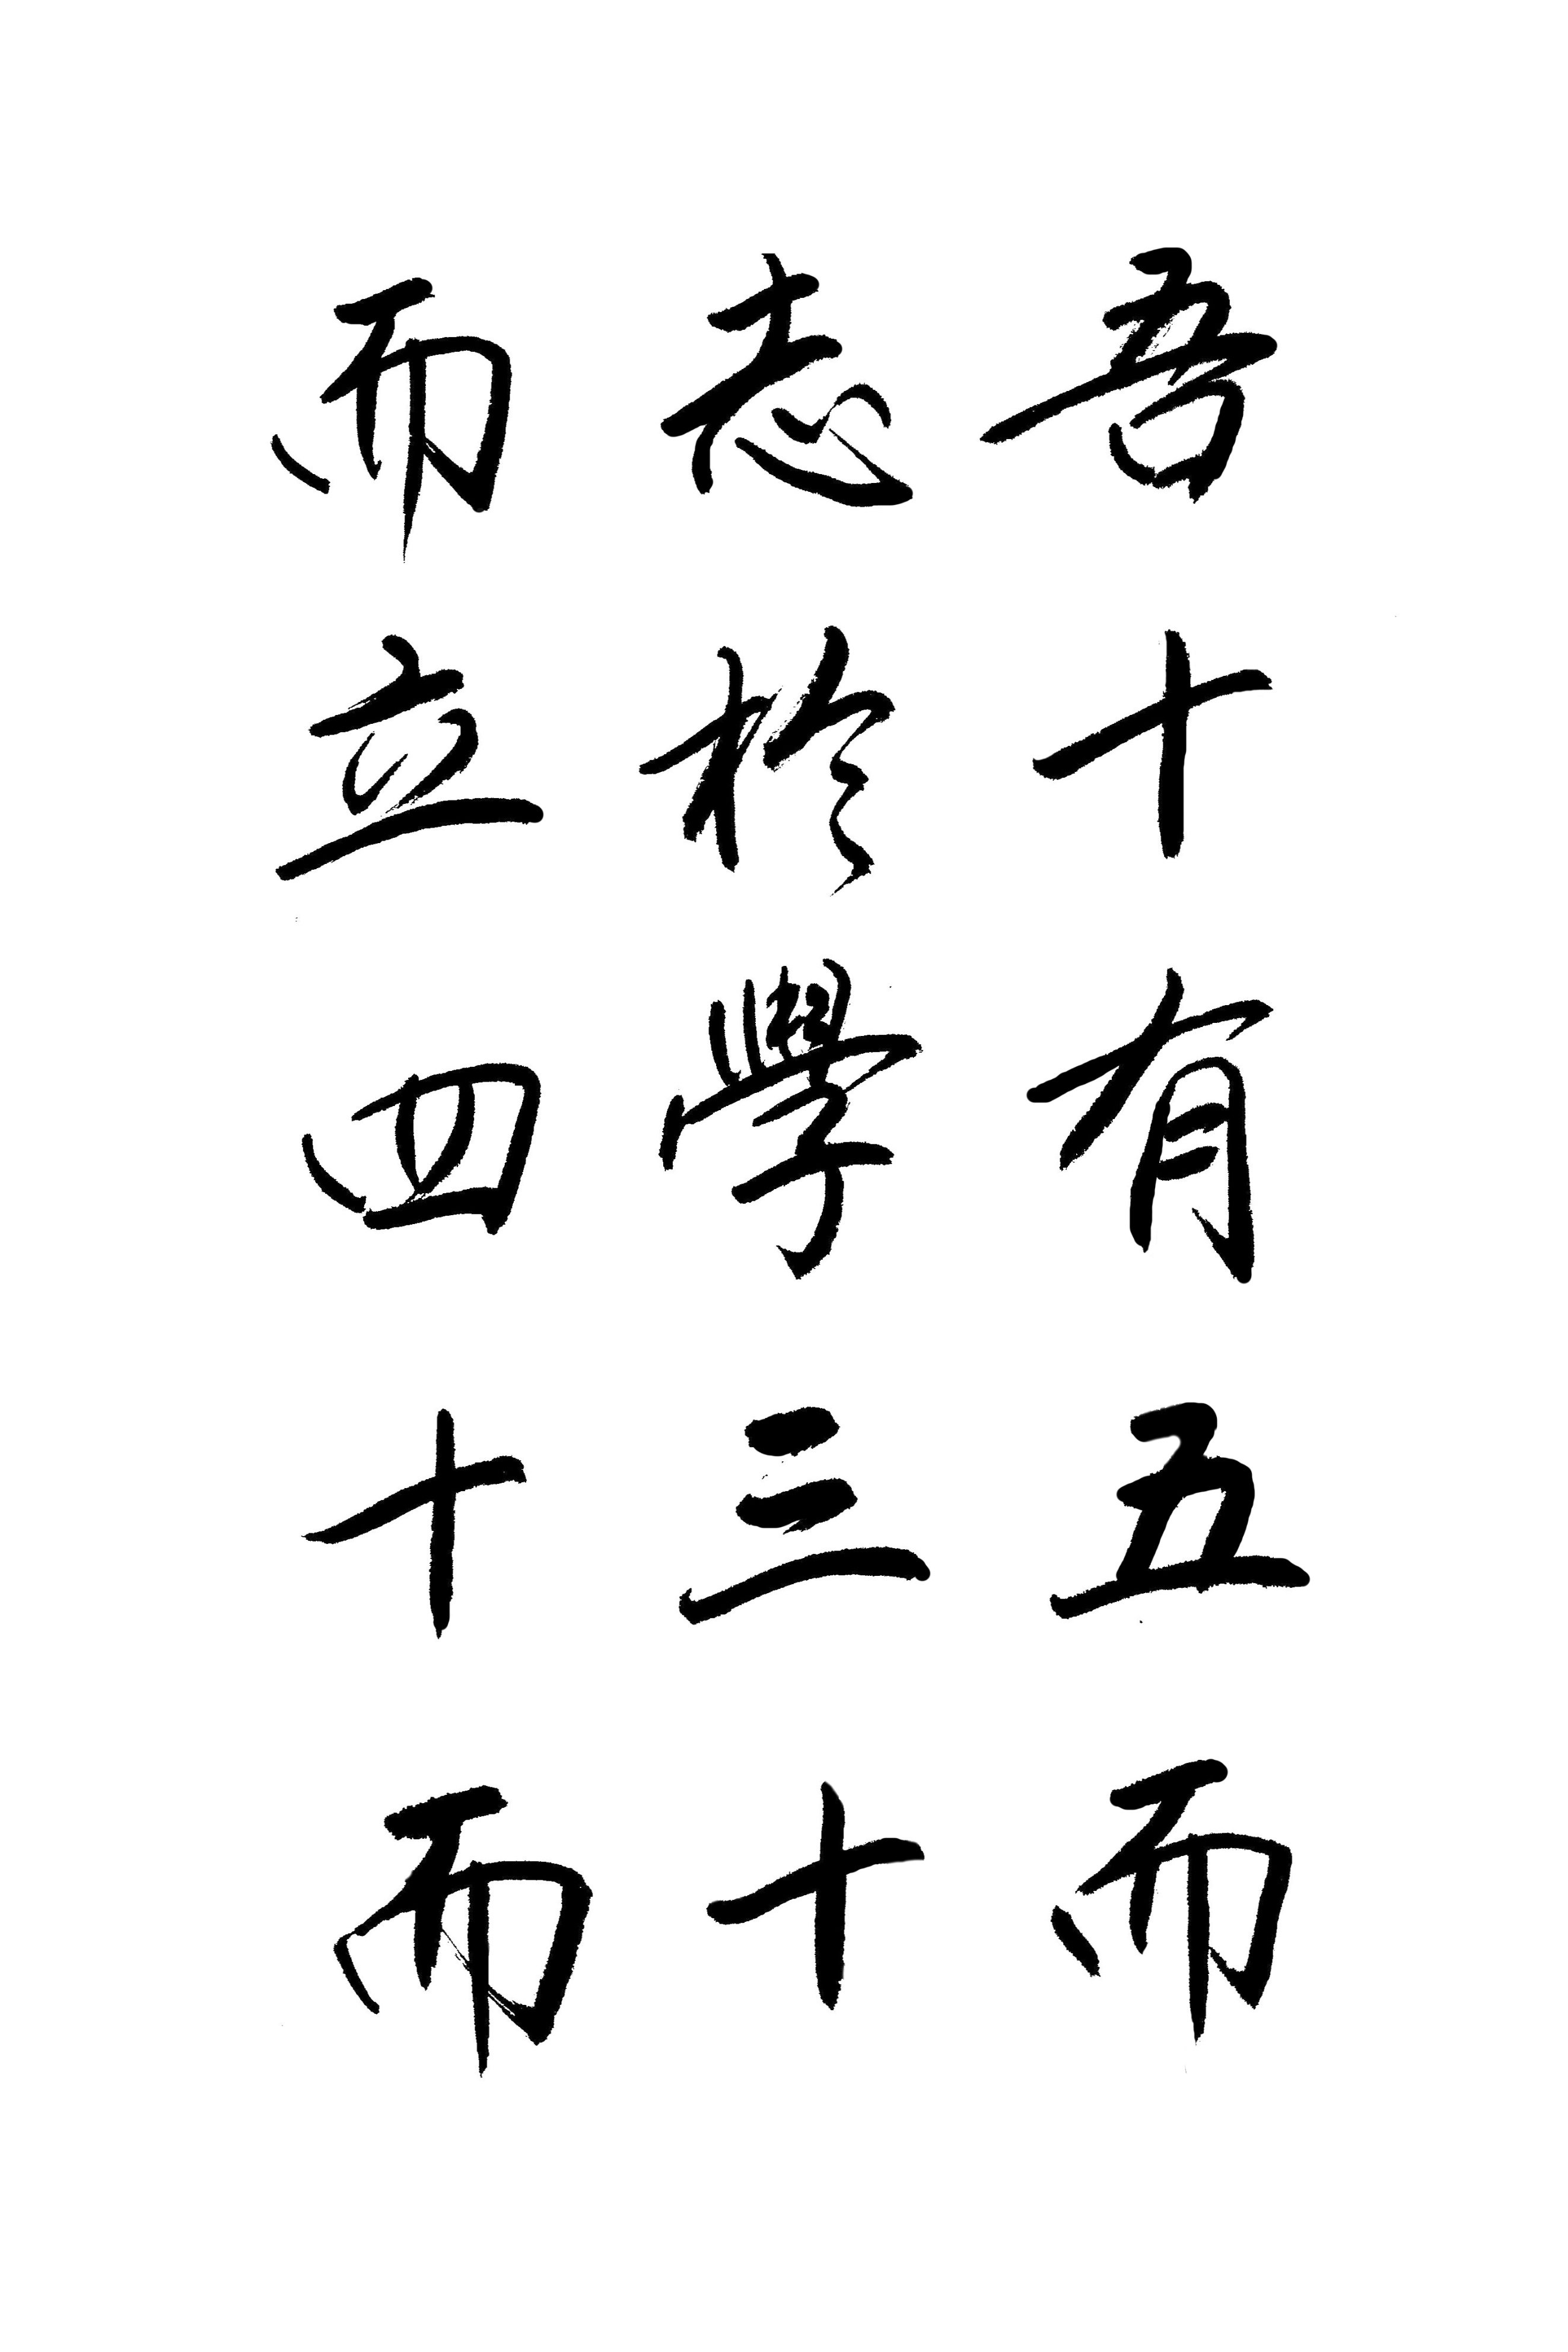 吾十有五而
志於學三十
而立四十而